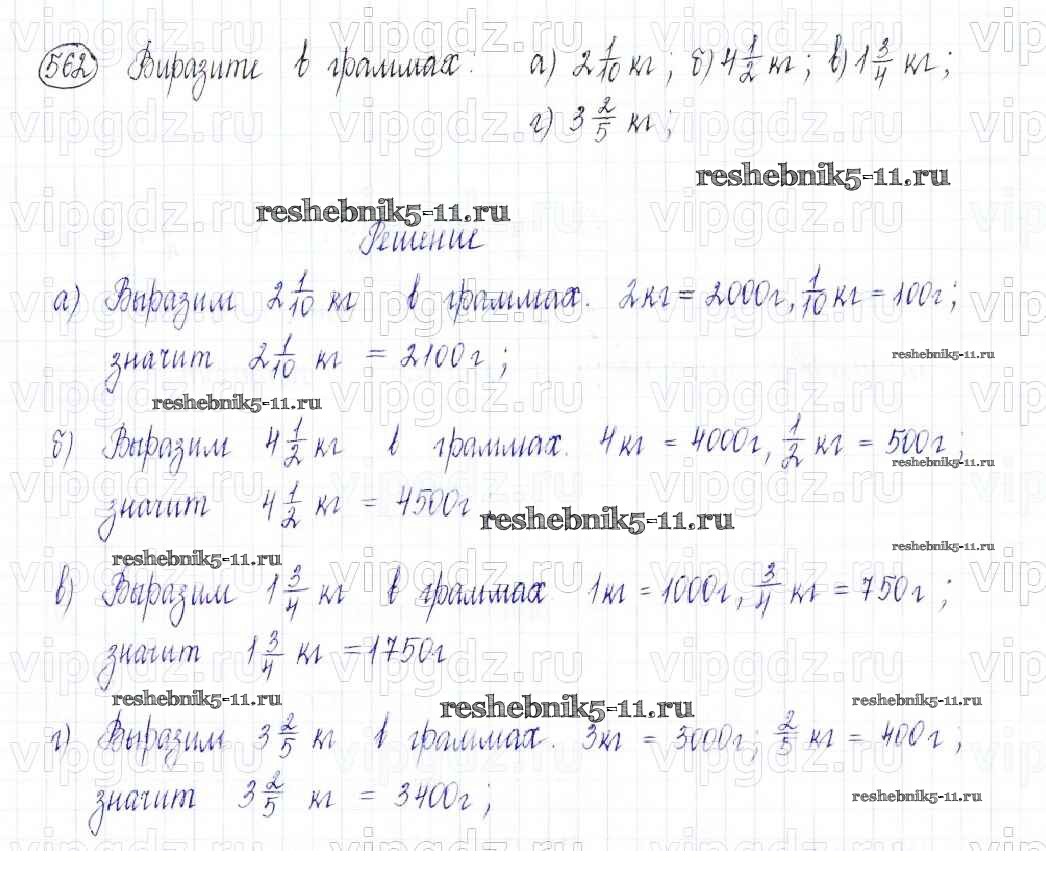 562 Выразите в граммах: а) 2 1/10 кг; б) 4 1/2 кг; в) 1 3/4 кг;
г) 3 2/5 кг;
reshebnik5-11.ru
reshebnik5-11.ru
Решение
а) Выразим 2 1/10 кг в граммах. 2кг = 2000г, 1/10 кг = 100г;
значит 2 1/10 кг = 2100г;
reshebnik5-11.ru
reshebnik5-11.ru
б) Выразим 4 1/2 кг в граммах. 4кг = 4000г, 1/2 кг = 500г;
reshebnik5-11.ru
значит 4 1/2 кг = 4500г
reshebnik5-11.ru
reshebnik5-11.ru
reshebnik5-11.ru
в) Выразим 1 3/4 кг в граммах 1кг = 1000г, 3/4 кг = 750г;
значит 1 3/4 кг = 1750г
reshebnik5-11.ru
reshebnik5-11.ru
reshebnik5-11.ru
г) Выразим 3 2/5 кг в граммах. 3кг = 3000г; 2/5 кг = 400г;
значит 3 2/5 кг = 3400г;
reshebnik5-11.ru
vipgdz.ru